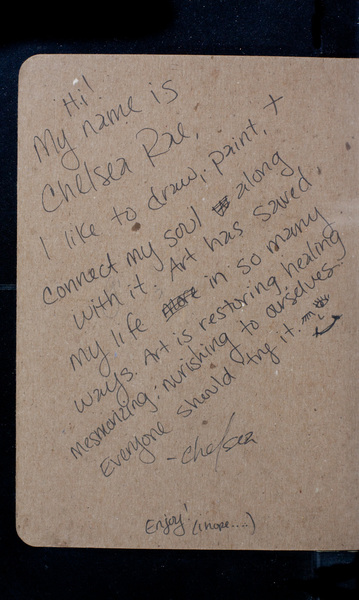 Hi!
My name is
Chelsea Rae
I like to draw, paint, +
connect my soul along
with it. Art has saved
my life in so many
ways. Art is restoring healing
mesmorizing: nurishing to ourselves.
Everyone should try it.
-Chelsea
Enjoy! (i hope....)